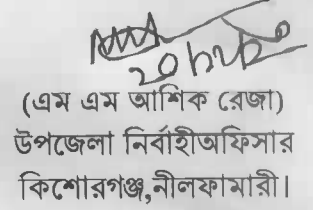 (এম এম আশিক রেজা)
উপজেলা নির্বাহীঅফিসার
কিশোরগঞ্জ,নীলফামারী।